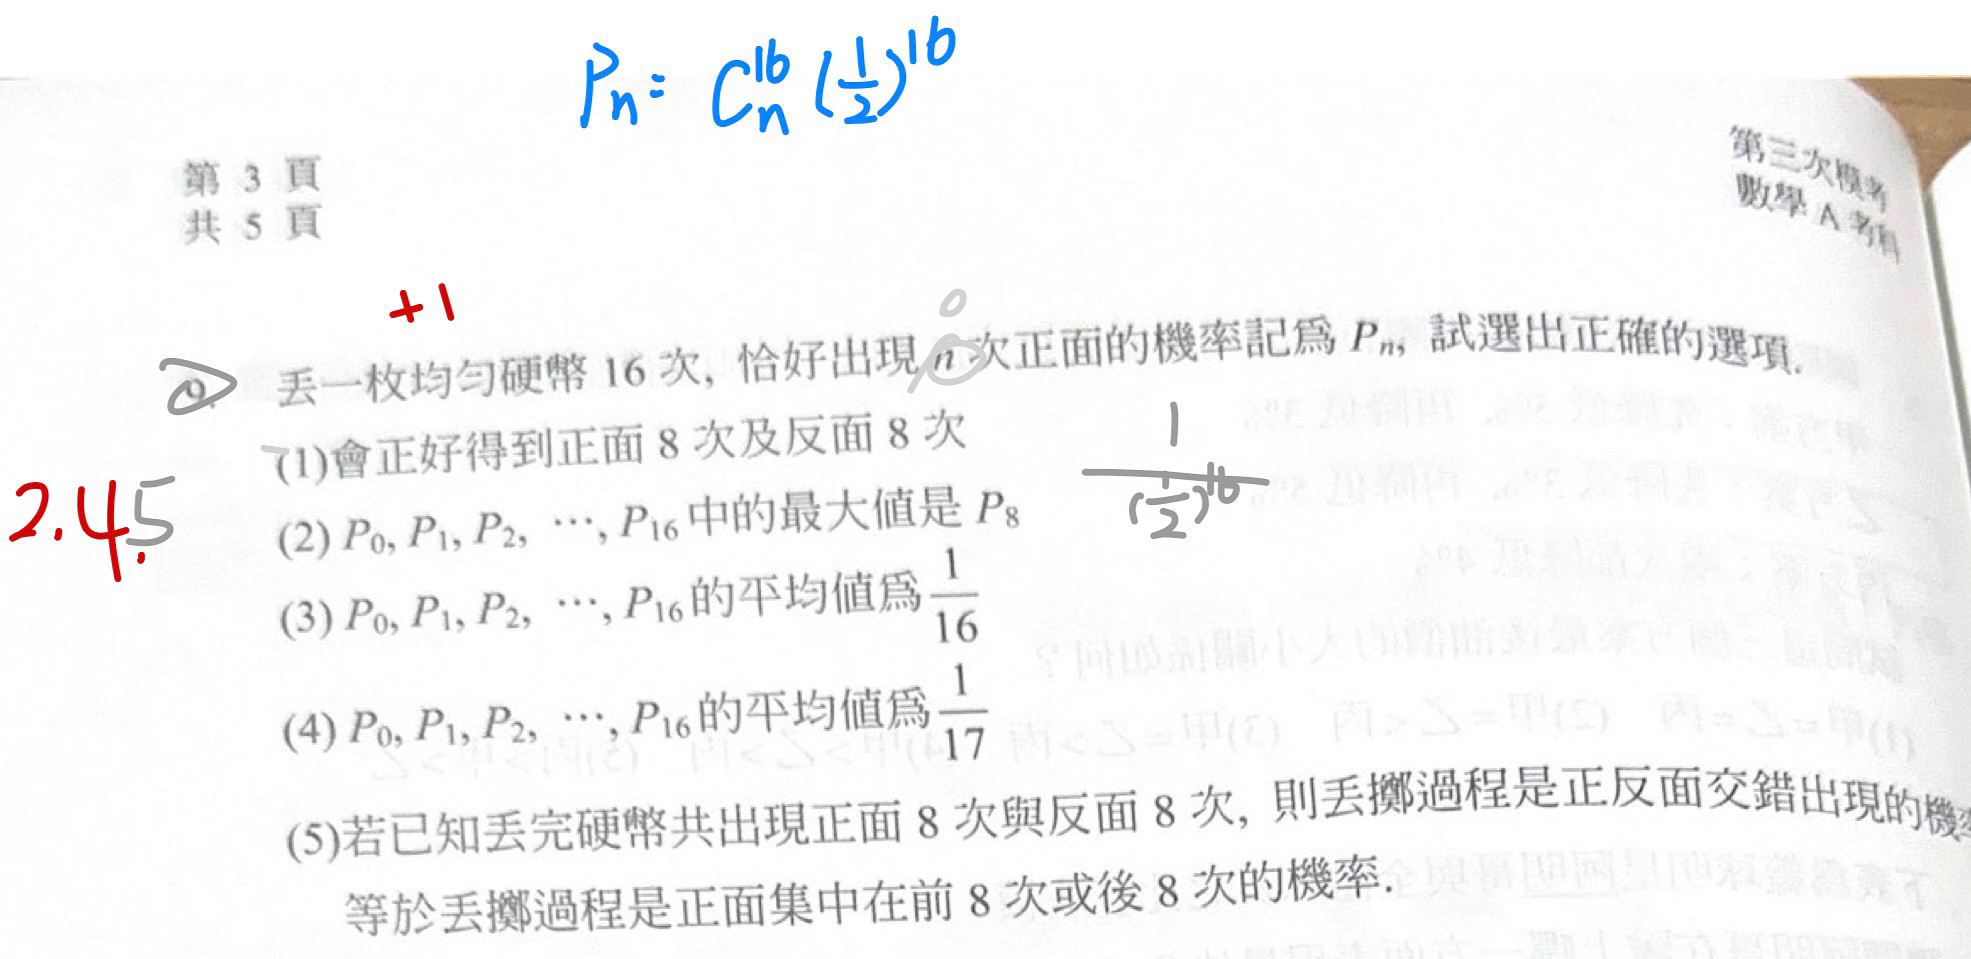 Pn = C¹⁶ₙ (1/2)¹⁶
第 3 頁
共 5 頁
第三次模考
數學 A 考科
+1
9. 丟一枚均勻硬幣 16 次, 恰好出現 n 次正面的機率記為 Pn, 試選出正確的選項.
(1)會正好得到正面 8 次及反面 8 次
1/(1/2)¹⁶
2.4.5
(2) P0, P1, P2, ⋯, P16 中的最大值是 P8
(3) P0, P1, P2, ⋯, P16 的平均值為 1/16
(4) P0, P1, P2, ⋯, P16 的平均值為 1/17
(5)若已知丟完硬幣共出現正面 8 次與反面 8 次, 則丟擲過程是正反面交錯出現的機率
等於丟擲過程是正面集中在前 8 次或後 8 次的機率.